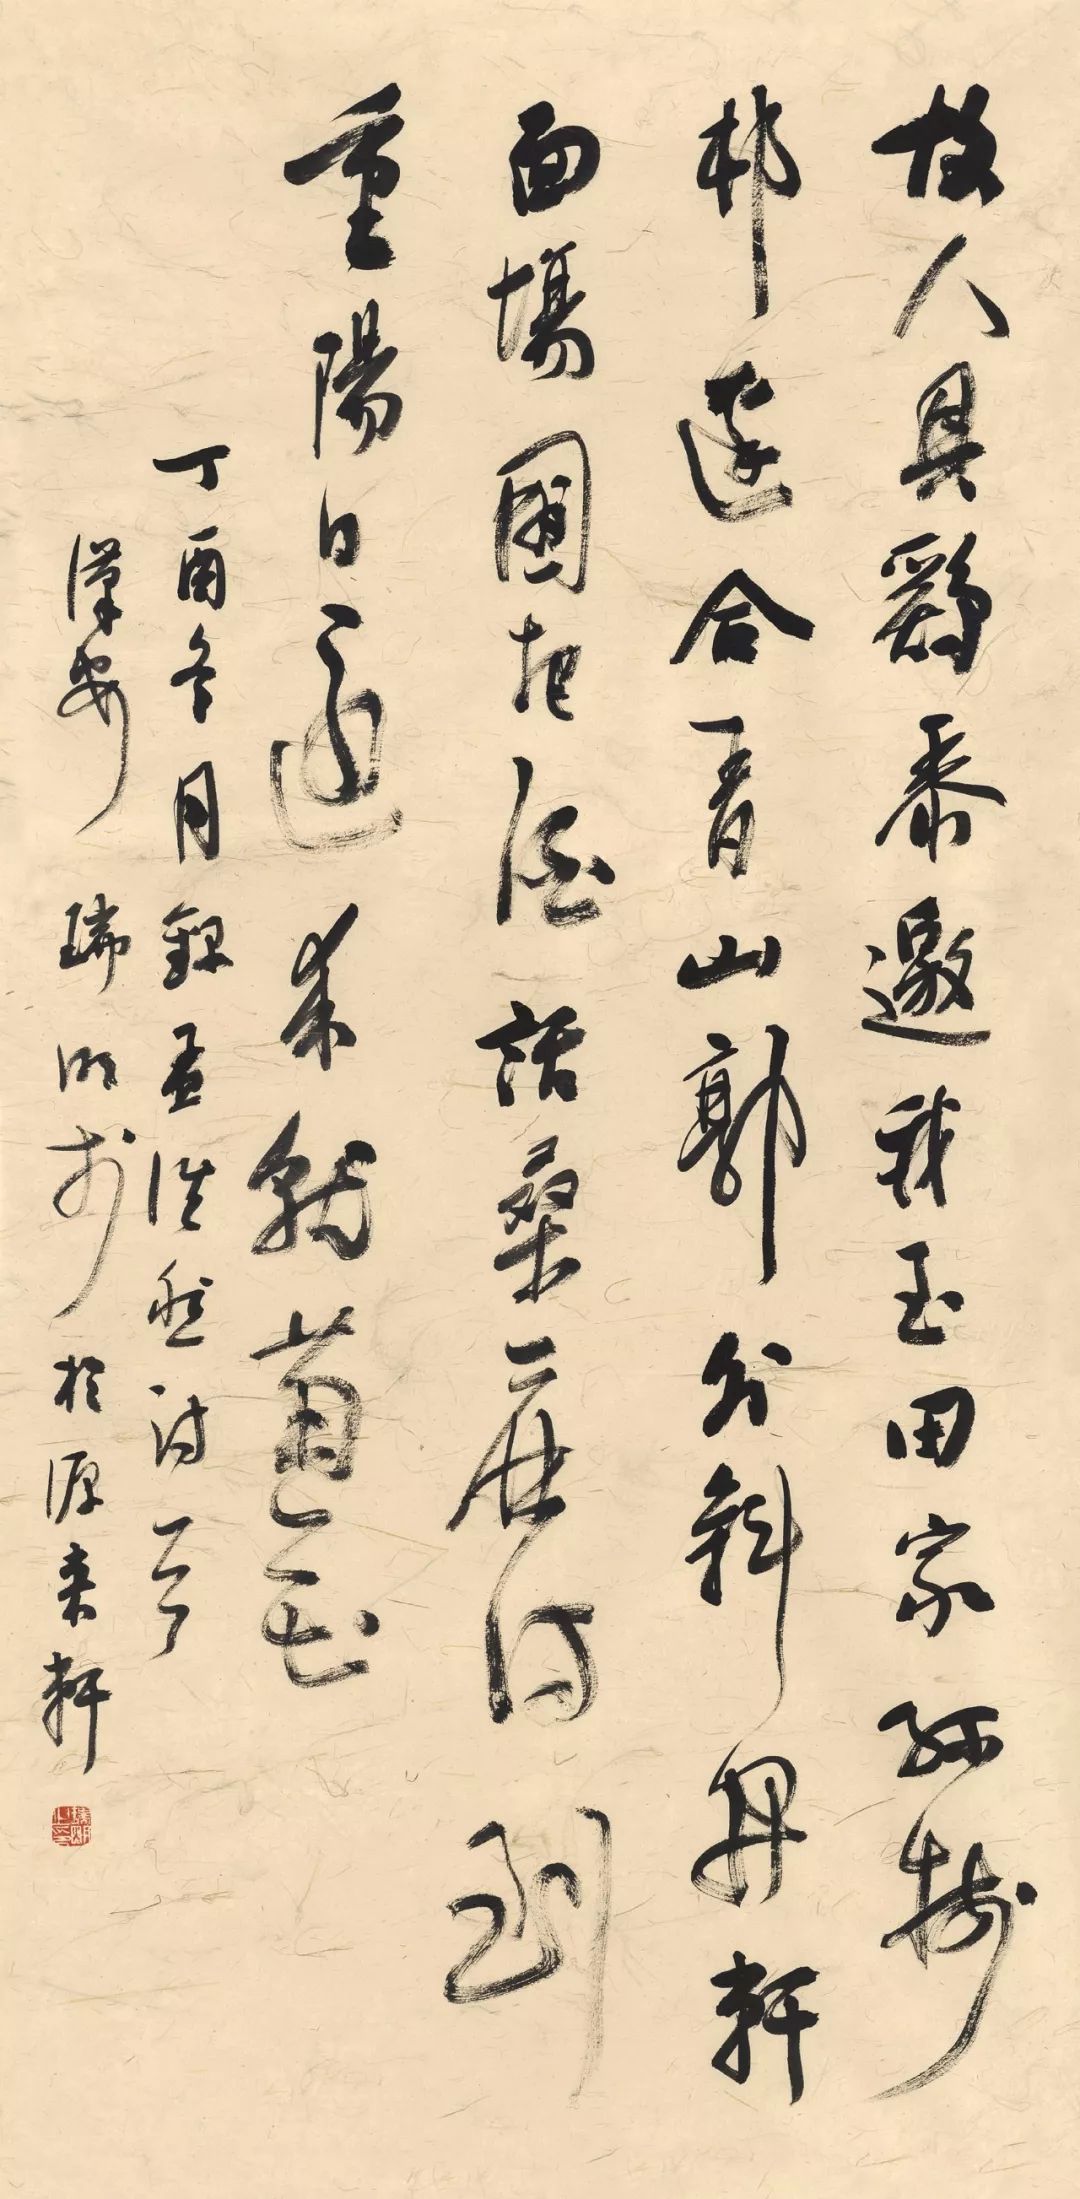 故人具鷄黍邀我至田家綠樹
邨邊合青山郭外斜開軒
面場圃把酒話桑麻待到
重陽日還來就菊花
丁酉冬月録孟浩然詩一首
漢安 瑞明書於源來軒